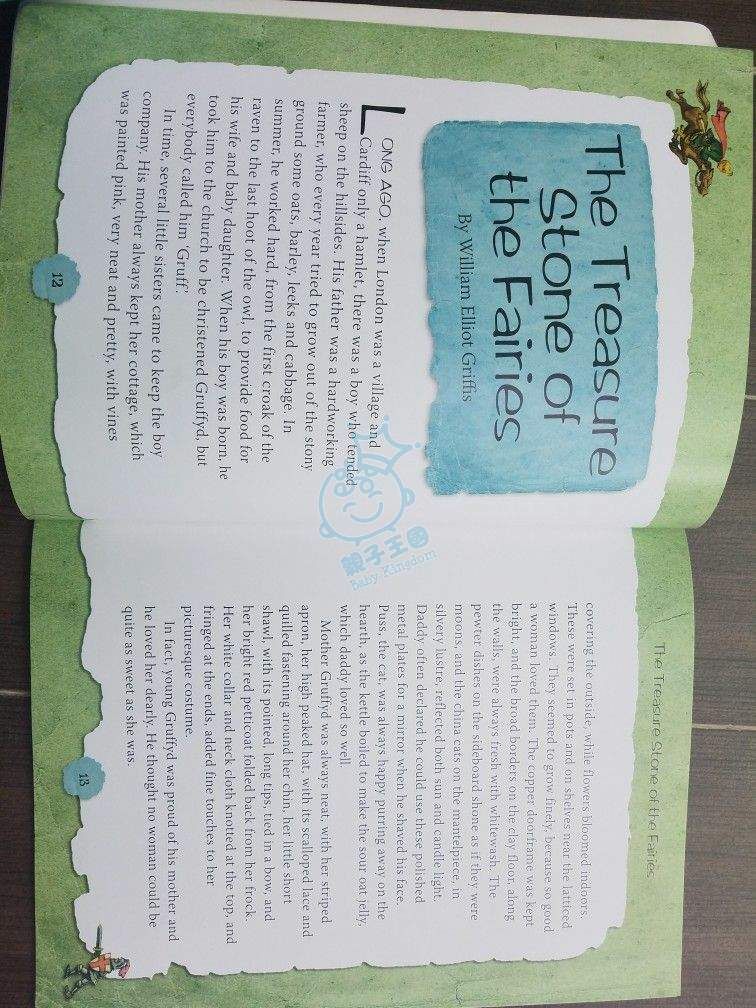 The Treasure
Stone of
the Fairies
By William Elliot Griffis
LONG AGO, when London was a village and
Cardiff only a hamlet, there was a boy who tended
sheep on the hillsides. His father was a hardworking
farmer, who every year tried to grow out of the stony
ground some oats, barley, leeks and cabbage. In
summer, he worked hard, from the first croak of the
raven to the last hoot of the owl, to provide food for
his wife and baby daughter. When his boy was born, he
took him to the church to be christened Gruffyd, but
everybody called him 'Gruff.'
In time, several little sisters came to keep the boy
company. His mother always kept her cottage, which
was painted pink, very neat and pretty, with vines
12
The Treasure Stone of the Fairies
covering the outside, while flowers bloomed indoors.
These were set in pots and on shelves near the latticed
windows. They seemed to grow finely, because so good
a woman loved them. The copper doorframe was kept
bright, and the broad borders on the clay floor, along
the walls, were always fresh with whitewash. The
pewter dishes on the sideboard shone as if they were
moons, and the china cats on the mantelpiece, in
silvery lustre, reflected both sun and candle light.
Daddy often declared he could use these polished
metal plates for a mirror when he shaved his face.
Puss, the cat, was always happy purring away on the
hearth, as the kettle boiled to make the sour oat jelly,
which daddy loved so well.
Mother Gruffyd was always neat, with her striped
apron, her high peaked hat, with its scalloped lace and
quilled fastening around her chin, her little short
shawl, with its pointed, long tips, tied in a bow, and
her bright red petticoat folded back from her frock.
Her white collar and neck cloth knotted at the top, and
fringed at the ends, added fine touches to her
picturesque costume.
In fact, young Gruffyd was proud of his mother and
he loved her dearly. He thought no woman could be
quite as sweet as she was.
13
親子王國
Baby Kingdom